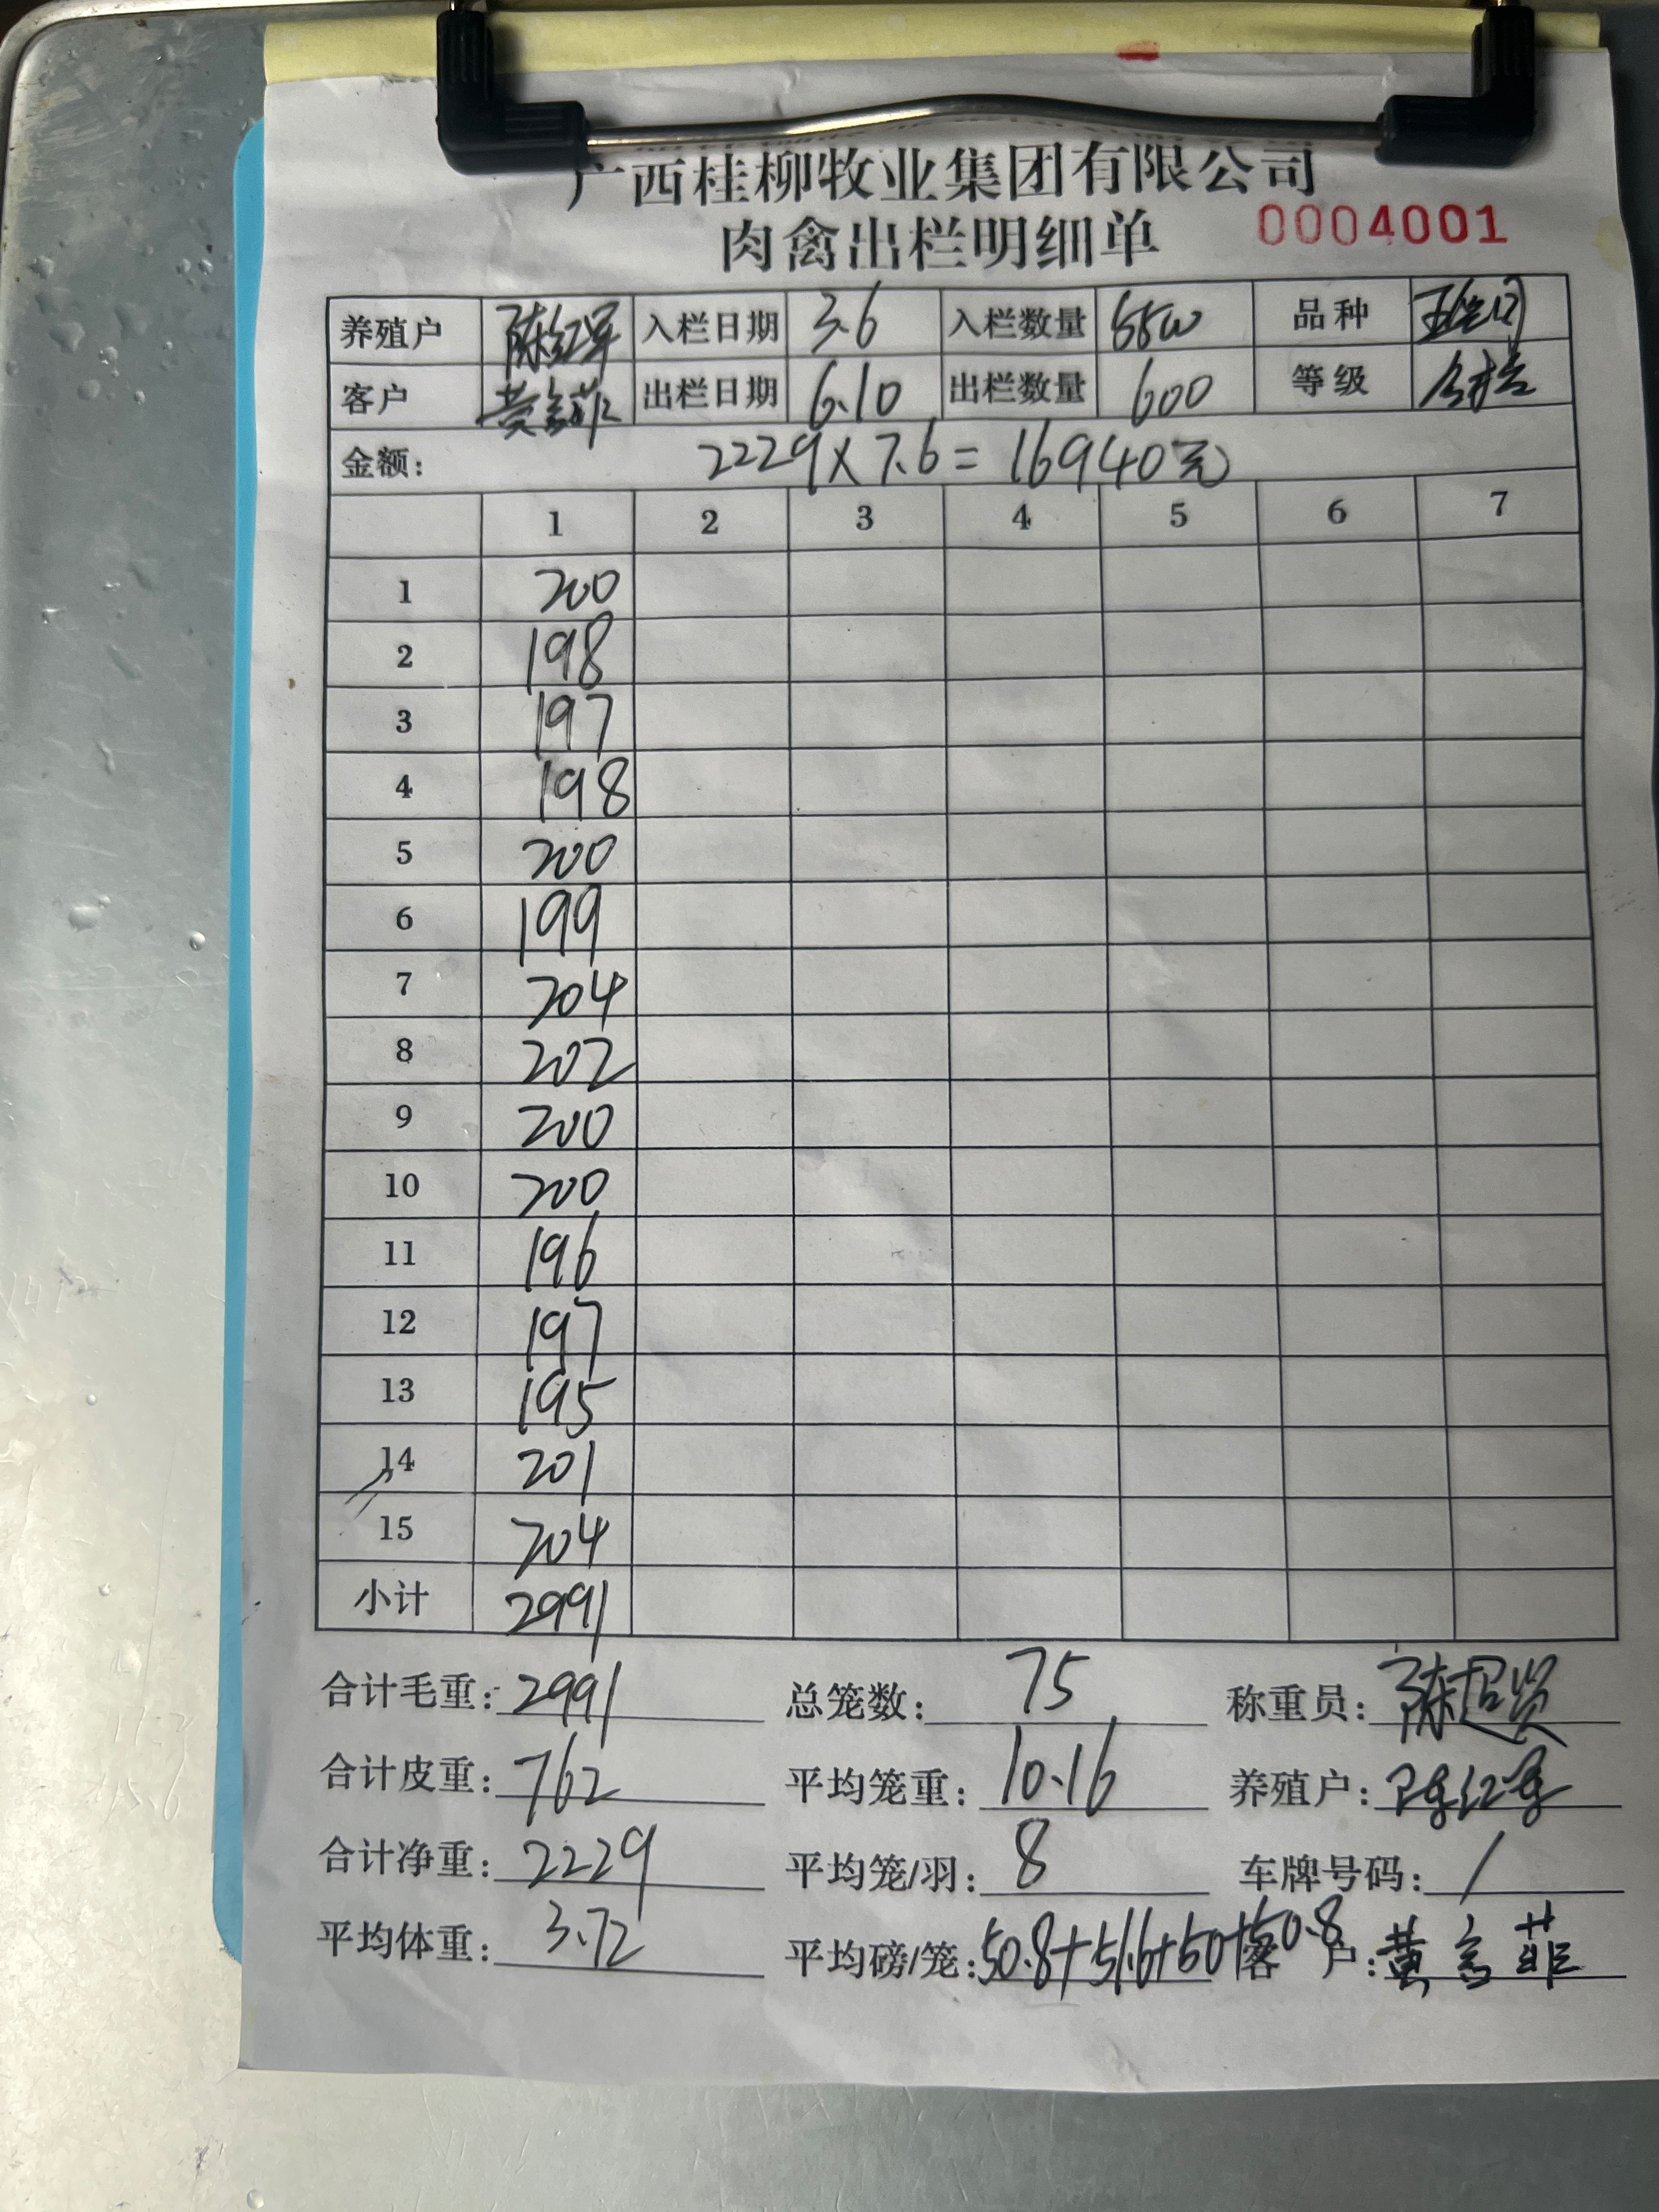 广西桂柳牧业集团有限公司
肉禽出栏明细单 0004001
养殖户 陈红军 入栏日期 3.6 入栏数量 5500 品种
客户 黄言菲 出栏日期 6.10 出栏数量 600 等级 合格
金额: 2229×7.6=16940元
1 2 3 4 5 6 7
1 200
2 198
3 197
4 198
5 200
6 199
7 204
8 202
9 200
10 200
11 196
12 197
13 195
14 201
15 204
小计 2991
合计毛重: 2991 总笼数: 75 称重员: 陈超贤
合计皮重: 762 平均笼重: 10.16 养殖户: 陈红军
合计净重: 2229 平均笼/羽: 8 车牌号码: /
平均体重: 3.72 平均磅/笼: 50.8+51.6+50+50.8 客户: 黄言菲